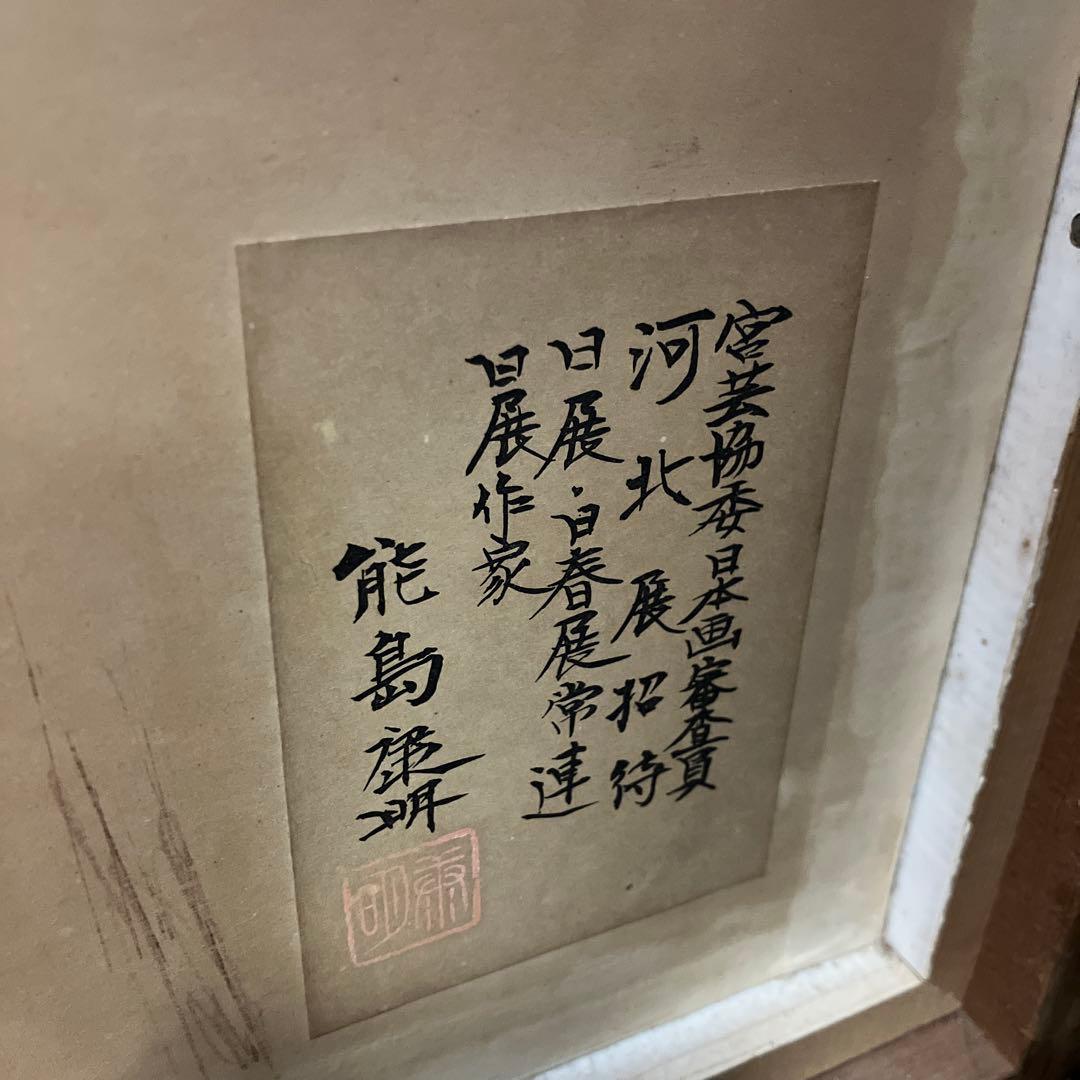 宮芸協委日本画審査員
河北展招待
日展・日春展常連
日展作家
能島康明
康明